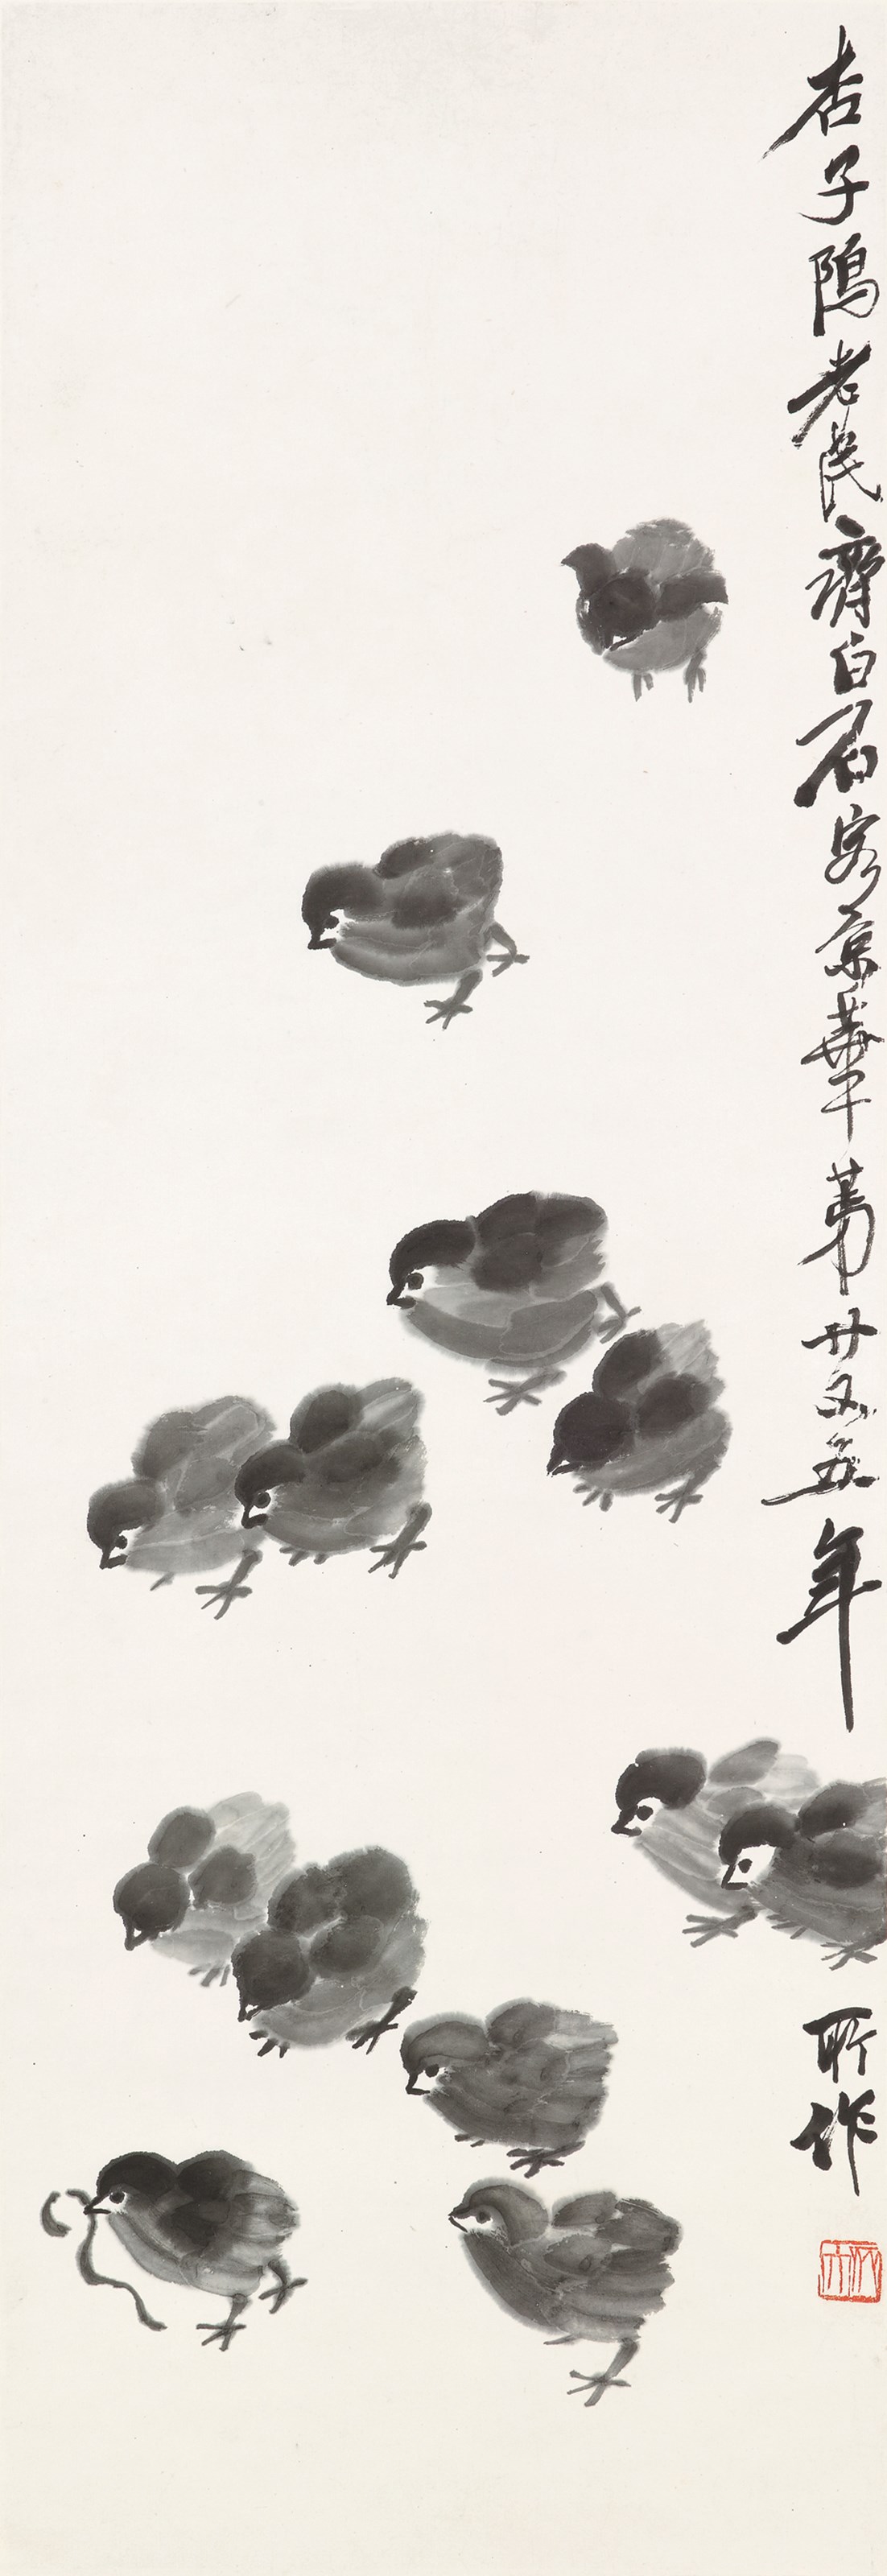 杏子隖老民齊白石客京華第廿又五年
所作